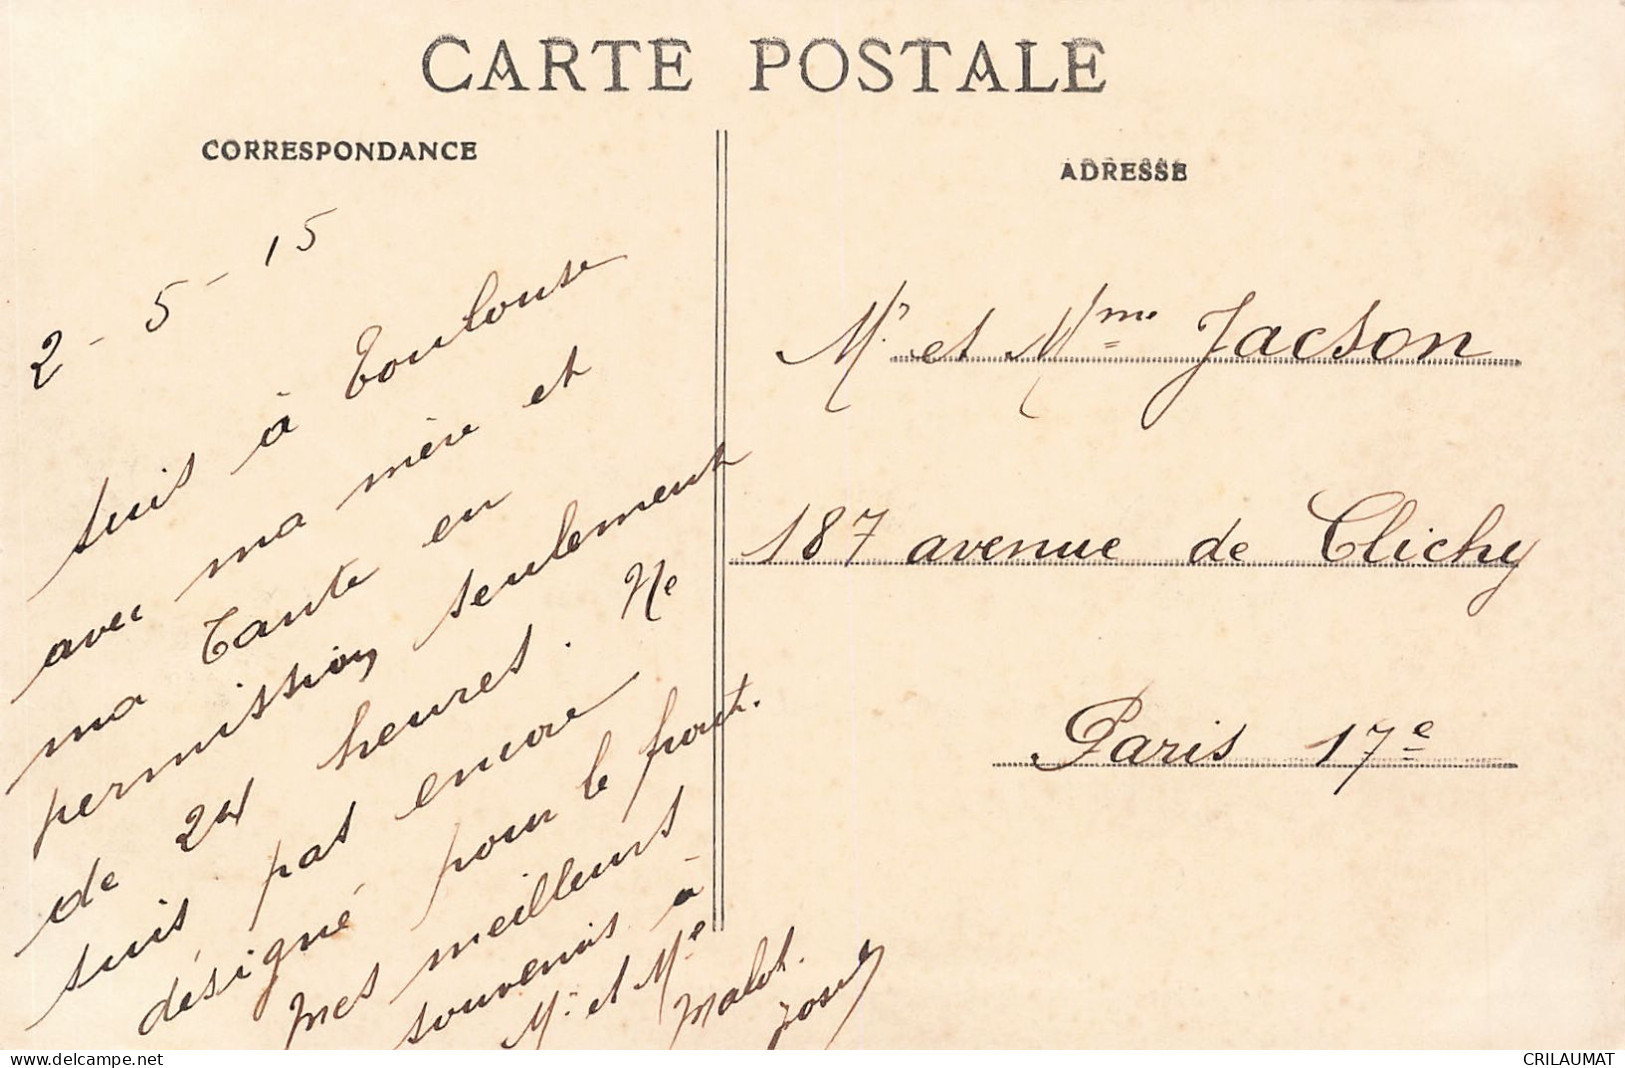 CARTE POSTALE
CORRESPONDANCE
2-5-15
suis à Toulouse
avec ma mère et
ma Tante en
permission seulement
de 24 heures. Ne
suis pas encore
désigné pour le front.
mes meilleurs
souvenirs à
Mr et Me
Malot.
ADRESSE
Mr et Mme Jacson
187 avenue de Clichy
Paris 17e
www.delcampe.net
CRILAUMAT